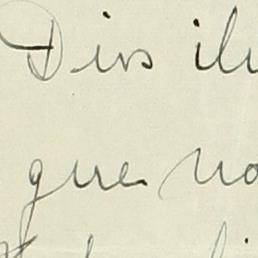 Dios ilu
que no